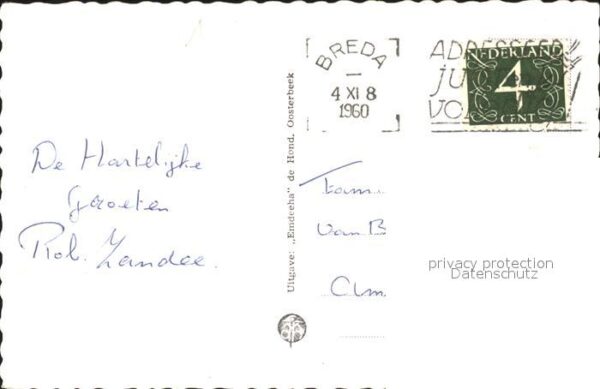 BREDA
4 XI 8
1960
ADRESSEER
JU
VO
NEDERLAND
4
CENT
De Hartelijke
Groeten
Rob. Zandee.
Uitgave: „Emdeeha" de Hond, Oosterbeek
Fam.
van B
privacy protection
Datenschutz